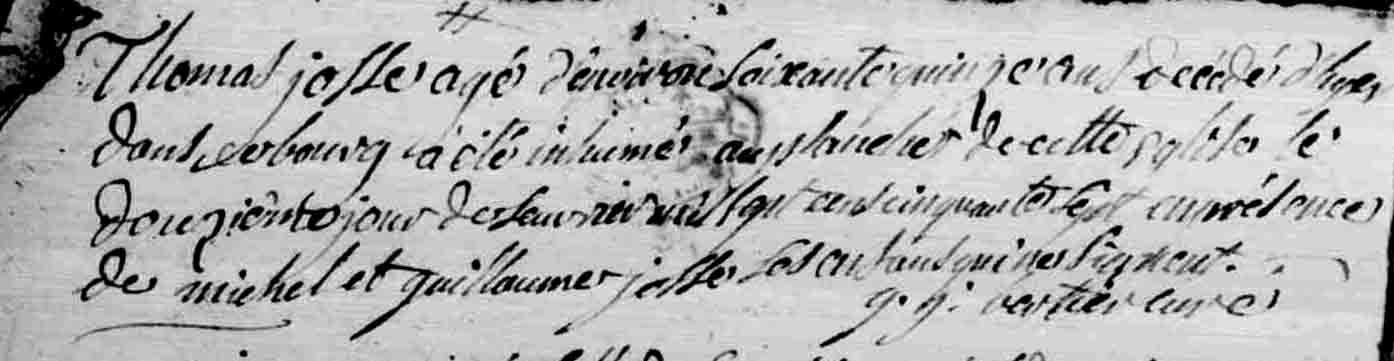 Thomas josse agé d'environ soixante quinze ans decedé d'hyer
dans ce bourg a été inhumé au planches de cette eglise le
douzieme jour de feuvrier mil sept cens cinquante sept en présence
de michel et guillaume josse ses enfans qui ne signent.
g. g. bertier curé